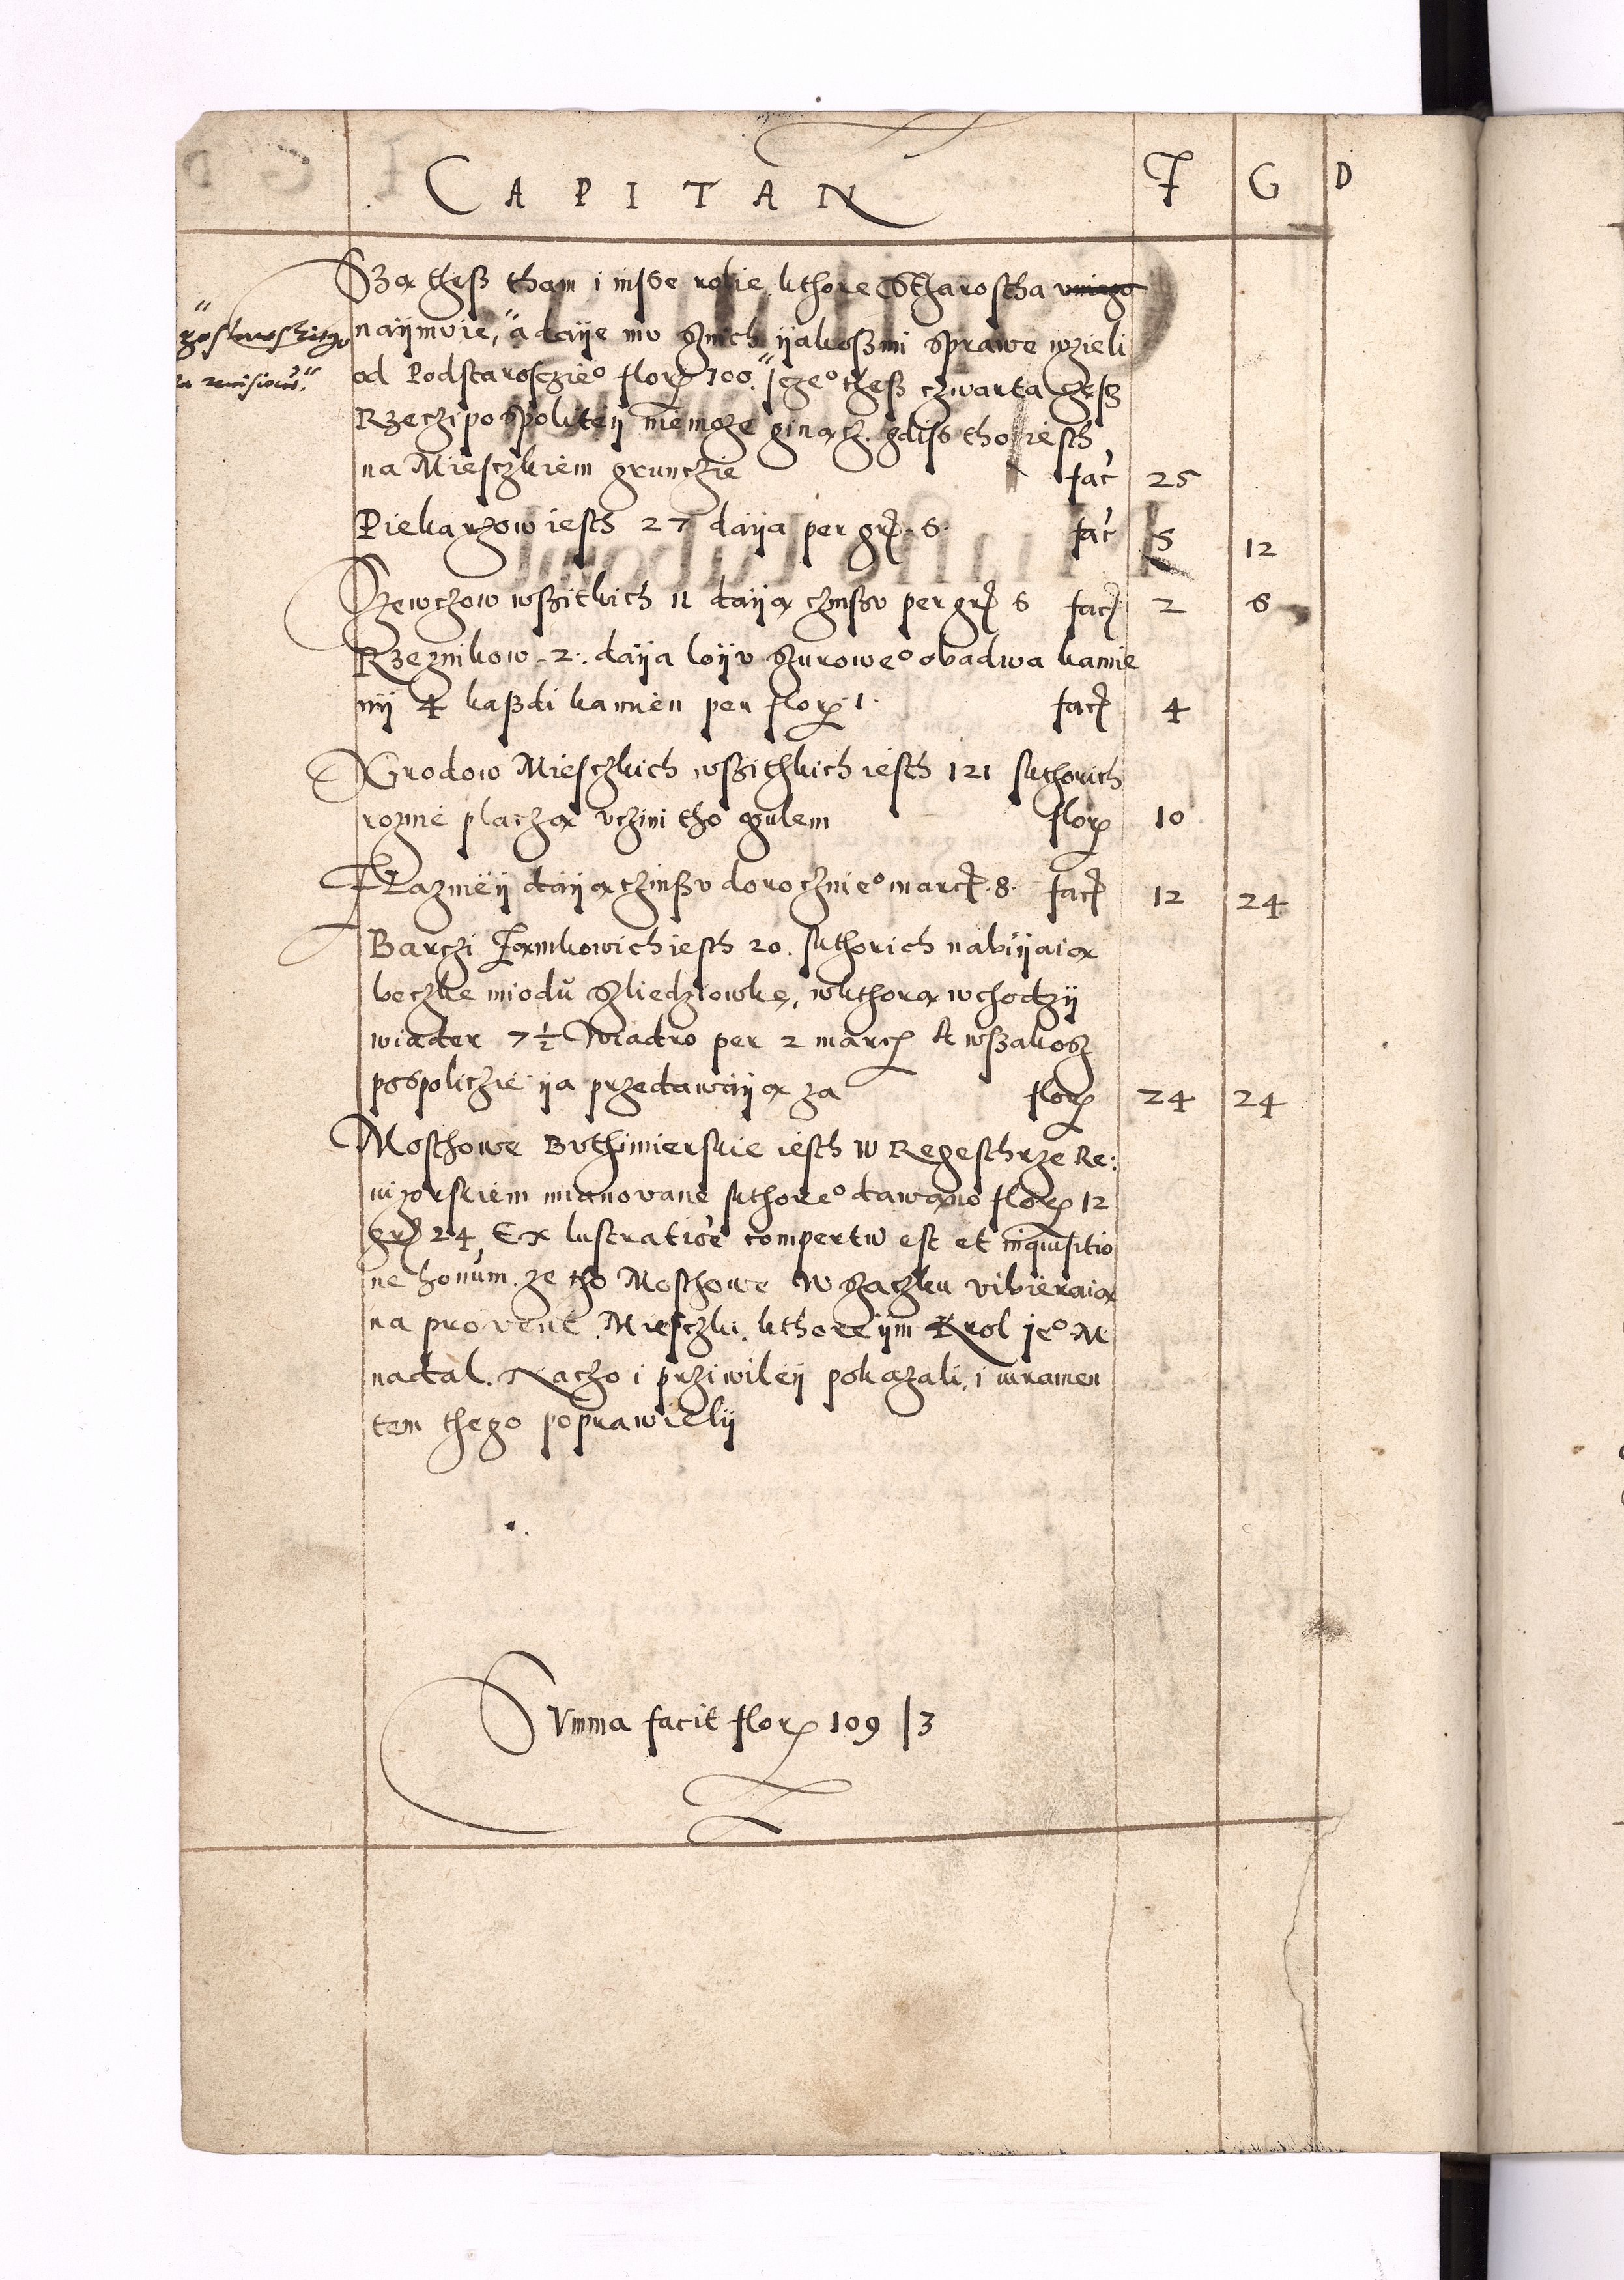 CAPITAN F G D
Sza thesz tham i insze rolie kthore Stharostha
naijmvie, a daije mv sznich ijakoszmi sprawe wzieli
od Podstaroscziego flor 100. sczego thesz czwarta czesz
Rzeczipospoliteij niemoze ginacz. gdisz tho iesth
na Miesczkiem grunczie fac 25
Piekarzow iesth 27 daija per gr 6 fac 5 12
Szewczow wszitkich 11 daija czinszv per gr 6 fac 2 6
Rzeznikow 2. daija loijv szurowego obadwa kamie
nij 4 kaszdi kamien per flor 1. fac 4
Ogrodow Miesczkich wszithkich iesth 121 skthorich
roznie placza vczini tho ogulem flor 10
Z Lazniëij daija czinszv dorocznie° marc 8. fac 12 24
Barczi iesth 20. skthorich nabijaia
beczke miodu szliedziowke, wkthora wchodzij
wiader 7½ Wiadro per 2 marc A wszakosz
pospoliczie ija przedawaija za flor 24 24
Mosthowe iesth W Regesthrze Re:
wizorskiem mianovane skthore° dawano flor 12
gr 24, Ex lustratione compertu est et inquisitio
ne bonum. ze tho Mosthowe W Saczku vibieraia
na provent Miesczki. kthore ijm Krol je° M
nadal. Naczo i prziwileij pokazali, i iuramen
tem thego poprawielij
Summa facit flor 109 | 3